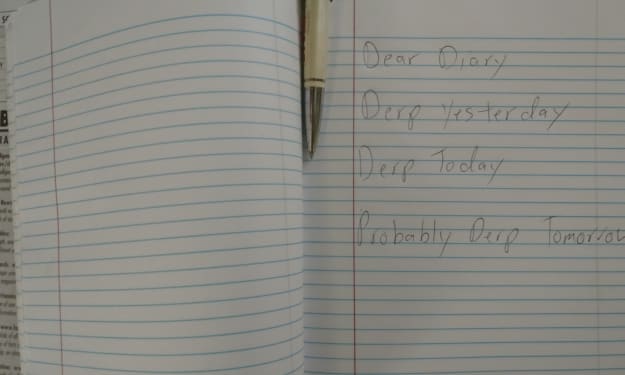 Dear Diary
Derp Yesterday
Derp Today
Probably Derp Tomorrow